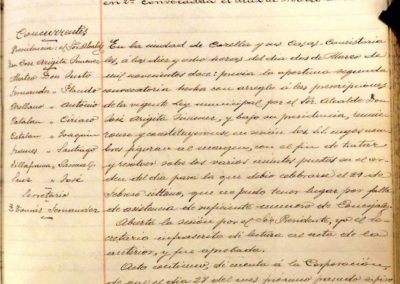 en 2ª convocatoria el día 2 de Marzo
Concurrentes
Presidencia, el Sor Alcalde
Don Angelito Jimenez
Mateo Don Justo
Fernandez " Plácido
Arellano " Antonio
Catalan " Ciriaco
Catalan " Joaquin
" Santiago
Villafranca,
" José
Secretario
D. Tomás Fernandez
En la ciudad de Corella y sus Casas Consistoria
les, á las diez y ocho horas del dia dos de Marzo de
mil novecientos doce: previa la oportuna segunda
convocatoria hecha con arreglo á las prescripciones
de la vigente ley municipal por el Sor Alcalde Don
Jimenez, y bajo su presidencia, reunie
ronse y constituyeronse en sesión los Sres cuyos nom
bres figuran al margen, con el fin de tratar
y resolver sobre los varios asuntos puestos en el or
den del dia para la que debió celebrarse el 29 de
Febrero último, que no pudo tener lugar por falta
de asistencia de suficiente número de Concejales.
Abierta la sesión por el Sor Presidente, yo el Se
cretario infrascrito di lectura al acta de la
anterior, y fue aprobada.
Acto continuo, di cuenta á la Corporación
de que el dia 28 del mes próximo pasado